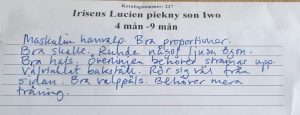 Katalognummer: 327
Irisens Lucien piekny son Iwo
4 mån -9 mån
Maskulin hanvalp. Bra proportioner.
Bra skalle. Runda något ljusa ögon.
Bra hals. Överlinjen behöver stramas upp.
Välvinklat bakställ. Rör sig väl från
sidan. Bra valppäls. Behöver mera
träning.